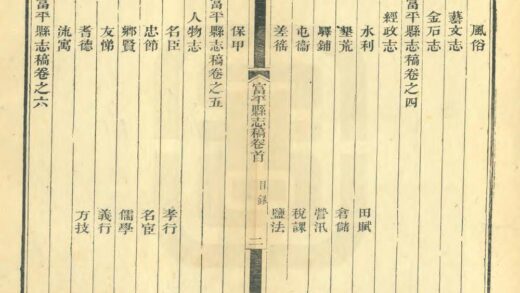 風俗
藝文志
金石志
富平縣志稿卷之四
經政志
水利　田賦
墾荒　倉儲
驛鋪　營汛
屯衞　稅課
差徭　鹽法
富平縣志稿卷首　目錄　二
保甲
富平縣志稿卷之五
人物志
名臣　孝行
忠節　名宦
鄉賢　儒學
友悌　義行
耆德　方技
流寓
富平縣志稿卷之六